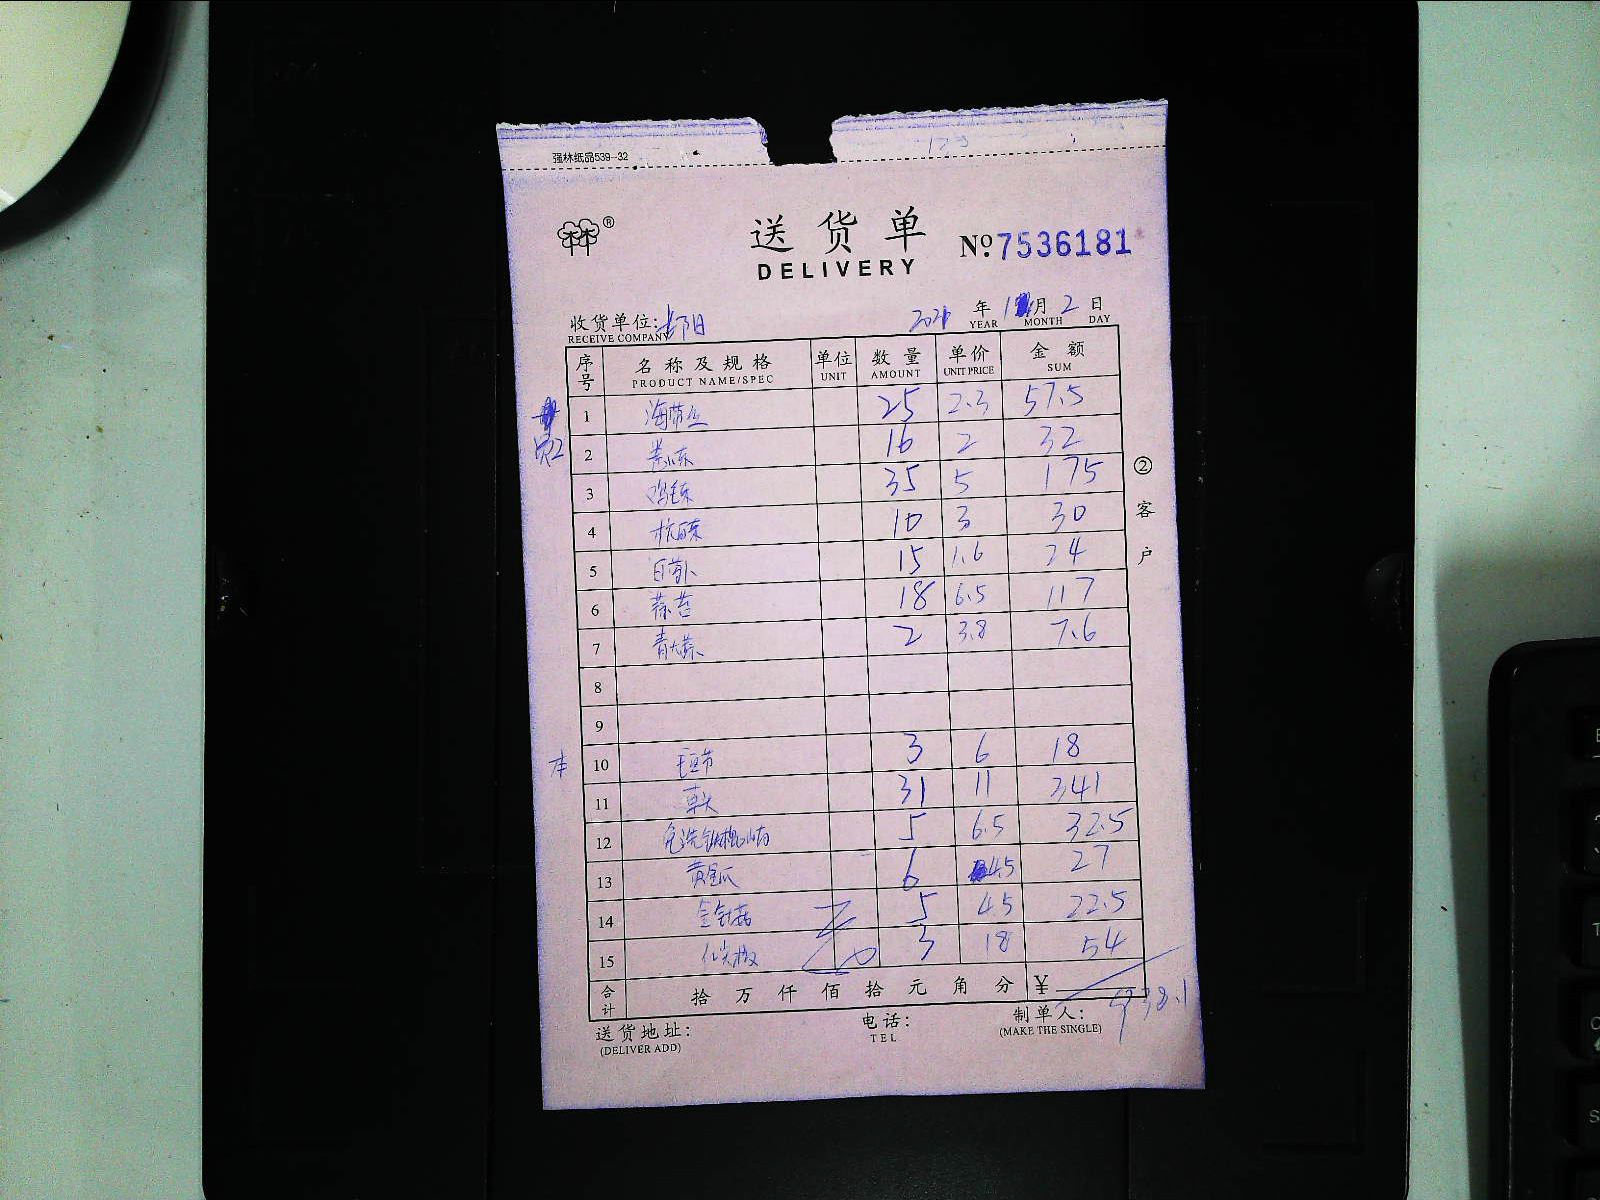 强林纸品539-32
®
送货单
DELIVERY
№ 7536181
收货单位: 年 1月 2日
RECEIVE COMPANY YEAR MONTH DAY
序号 名称及规格 单位 数量 单价 金额
PRODUCT NAME/SPEC UNIT AMOUNT UNIT PRICE SUM
1 海带丝 25 2.3 57.5
2 16 2 32
3 35 5 175
4 10 3 30
5 白萝卜 15 1.6 24
6 蒜苔 18 6.5 117
7 2 3.8 7.6
8
9
10 3 6 18
11 31 11 341
12 5 6.5 32.5
13 黄金瓜 6 4.5 27
14 金针菇 5 4.5 22.5
15 3 18 54
合计 拾万仟佰拾元角分 ¥
938.1
② 客户
送货地址: 电话: 制单人:
(DELIVER ADD) TEL (MAKE THE SINGLE)